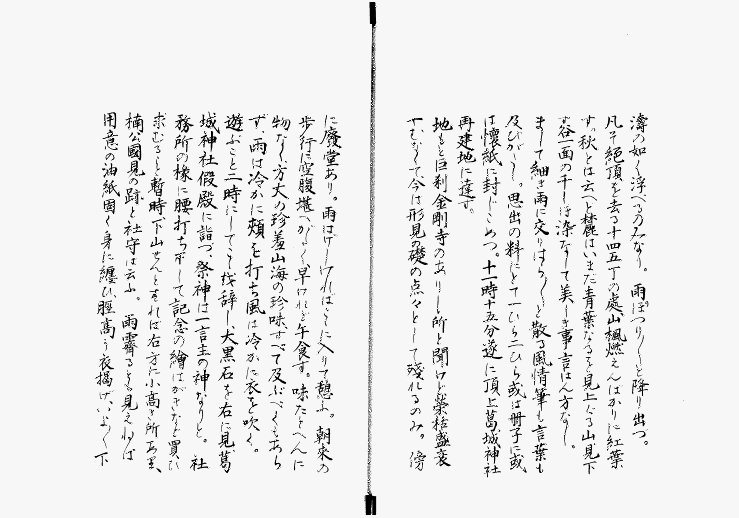 濤の如く浮べるのみなり。雨ぽつり〱と降り出つ。
凡そ絶頂を去る十四五丁の處山楓燃えんばかりに紅葉
す。秋とは云へど麓はいまだ青葉なるを見上ぐる山見下
す谷一面の千しほ染なして美しき事言はん方なし。
まして細き雨に交りはら〱と散る風情筆も言葉も
及びがたし。思出の料にと一ひら二ひら或は册子に或
は懐紙に封じこめつ。十一時十五分遂に頂上葛城神社
再建地に達す。
地もと巨刹金剛寺のありし所と聞けど榮枯盛衰
つねなくて、今は形見の礎の点々として残れるのみ。傍
に廢堂あり。雨はげしければこゝに入りて憩ふ。朝來の
歩行に空腹堪へがたく早けれど午食す。味たとへんに
物なく、方丈の珍羞山海の珍味すべて及ぶべくもあら
ず、雨は冷かに頬を打ち風は冷かに衣を吹く。
遊ぶこと二時にしてこゝを辞し、大黒石を右に見、葛
城神社假殿に詣づ、祭神は一言主の神なりと。社
務所の椽に腰打ちかけして記念の繪はがきなど買ひ
求むること暫時下山せんとすれば右方に小高き所あり、
楠公國見の跡と社守は云ふ。雨霽るゝと見えねば
用意の油紙固く身に纏ひ、脛高う衣揭げ、いよ〱下